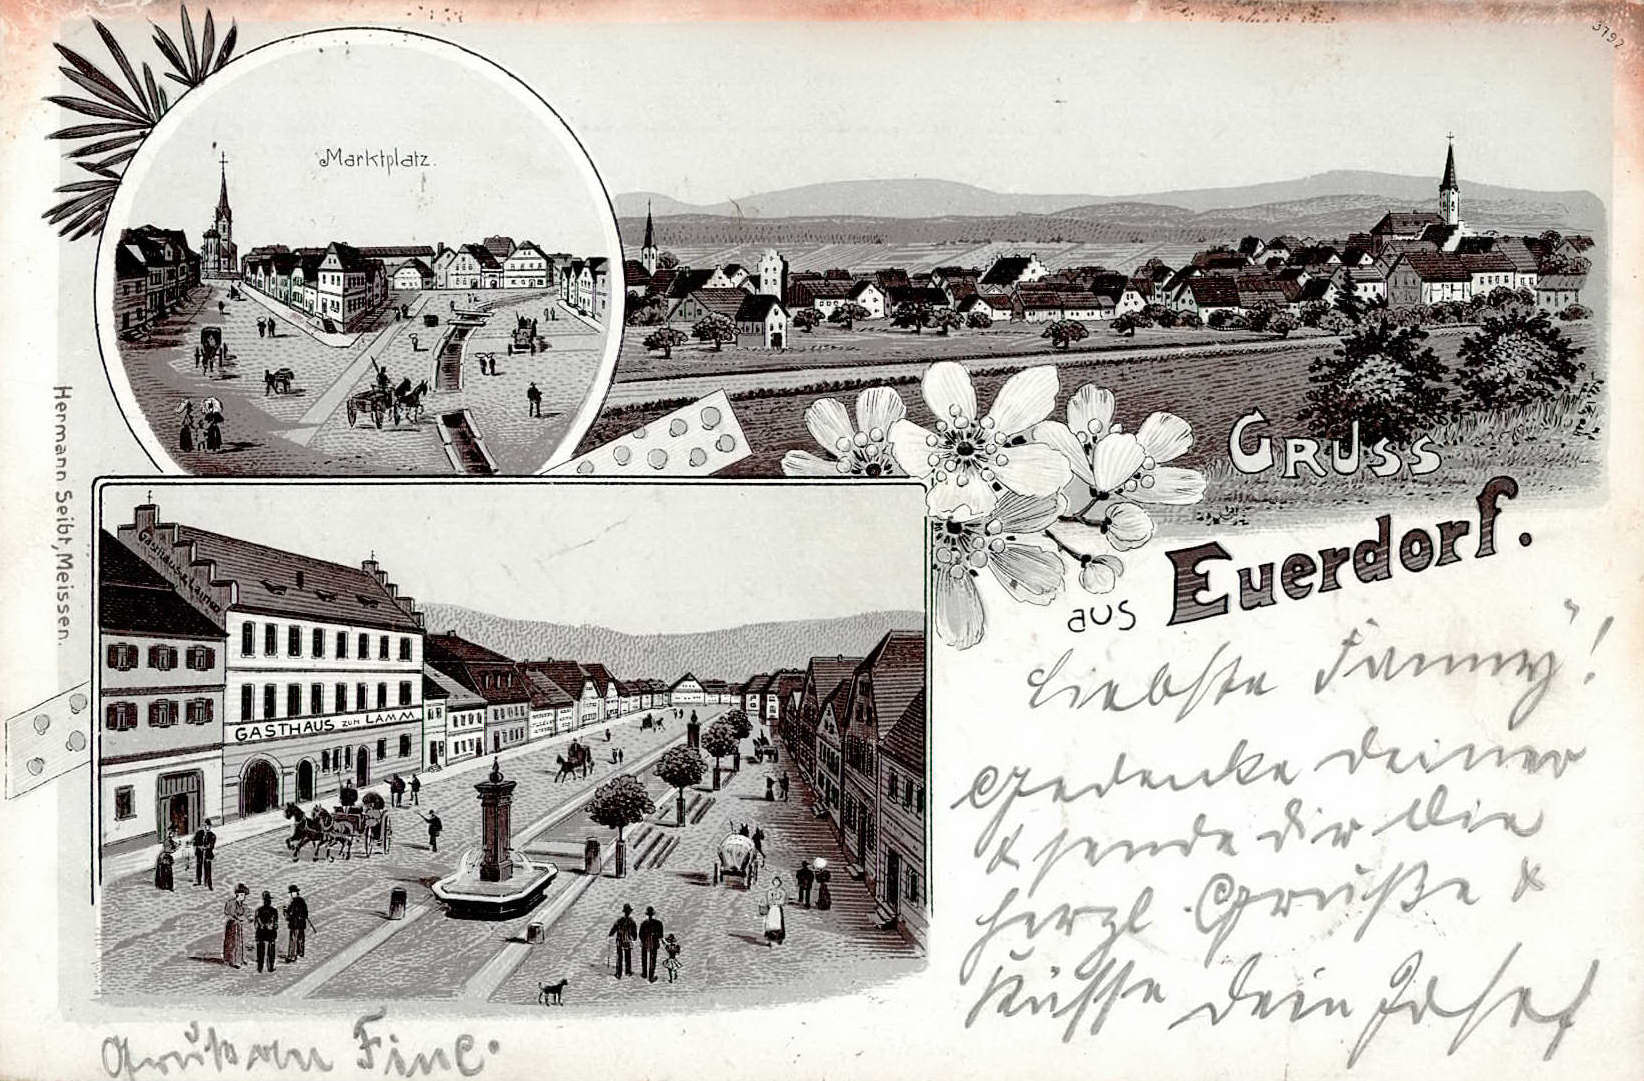 3792
Marktplatz.
GRUSS
aus Euerdorf.
Hermann Seibt, Meissen.
GASTHAUS ZUM LAMM
Liebste Fanny!
Gedenke deiner
& sende dir die
herzl. Grüße &
Küsse dein Josef
Gruß an Fine.